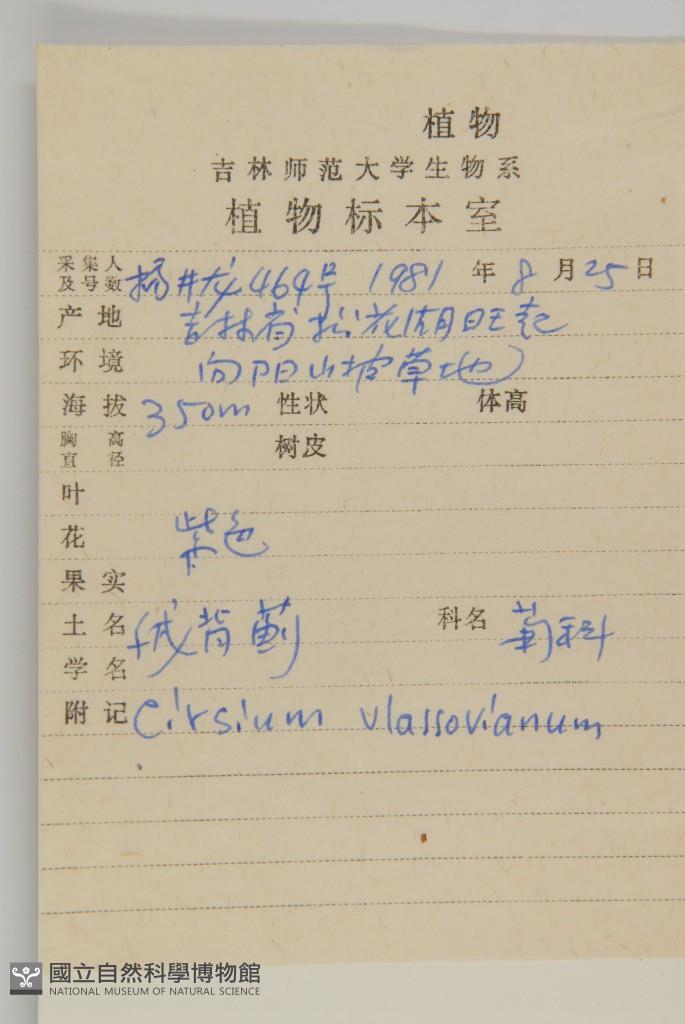 植物
吉林师范大学生物系
植物标本室
采集人及号数 杨井龙 464号 1981年8月25日
产地 吉林省松花湖旺起
环境 向阳山坡草地
海拔 350m 性状 体高
胸高直径 树皮
叶
花 紫色
果实
土名 绒背蓟 科名 菊科
学名
附记 Cirsium vlassovianum
國立自然科學博物館
NATIONAL MUSEUM OF NATURAL SCIENCE